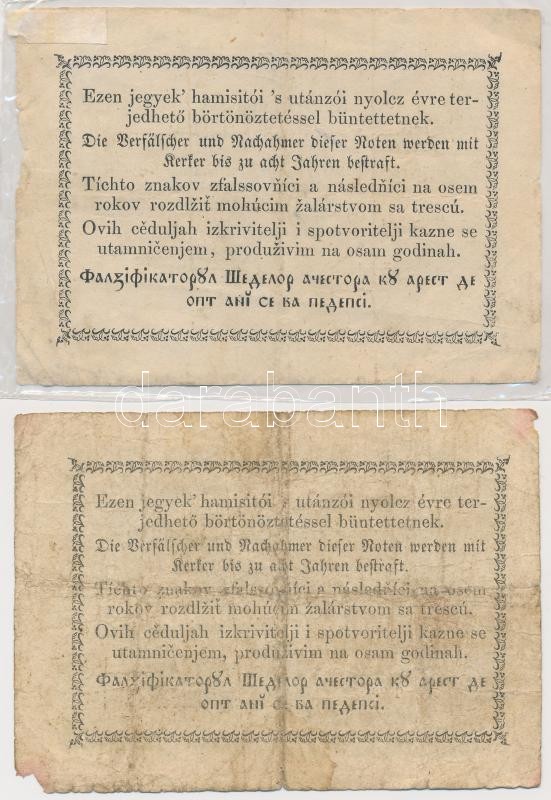 Ezen jegyek' hamisitói 's utánzói nyolcz évre ter-
jedhető börtönöztetéssel büntettetnek.
Die Verfälscher und Nachahmer dieser Noten werden mit
Kerker bis zu acht Jahren bestraft.
Tíchto znakov zfalssovňíci a následňíci na osem
rokov rozdlžiť mohúcim žalárstvom sa trescú.
Ovih cěduljah izkrivitelji i spotvoritelji kazne se
utamničenjem, produživim na osam godinah.
Фалꙃіфікаторꙋл Шеделор ачестора кꙋ арест де
опт анӥ се ва педепсі.
darabanth
Ezen jegyek' hamisitói 's utánzói nyolcz évre ter-
jedhető börtönöztetéssel büntettetnek.
Die Verfälscher und Nachahmer dieser Noten werden mit
Kerker bis zu acht Jahren bestraft.
Tíchto znakov zfalssovňíci a následňíci na osem
rokov rozdlžiť mohúcim žalárstvom sa trescú.
Ovih cěduljah izkrivitelji i spotvoritelji kazne se
utamničenjem, produživim na osam godinah.
Фалꙃіфікаторꙋл Шеделор ачестора кꙋ арест де
опт анӥ се ва педепсі.